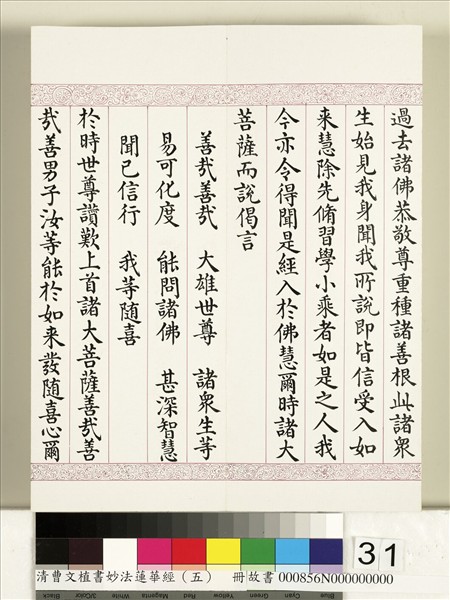 過去諸佛恭敬尊重種諸善根此諸衆
生始見我身聞我所說即皆信受入如
来慧除先脩習學小乘者如是之人我
今亦令得聞是經入於佛慧爾時諸大
菩薩而說偈言
善哉善哉 大雄世尊 諸衆生等
易可化度 能問諸佛 甚深智慧
聞已信行 我等随喜
於時世尊讚歎上首諸大菩薩善哉善
哉善男子汝等能於如来發随喜心爾
31
清曹文植書妙法蓮華經（五） 冊故書 000856N000000000
Black 3/Color White Magenta Red Yellow Green Cyan Blue